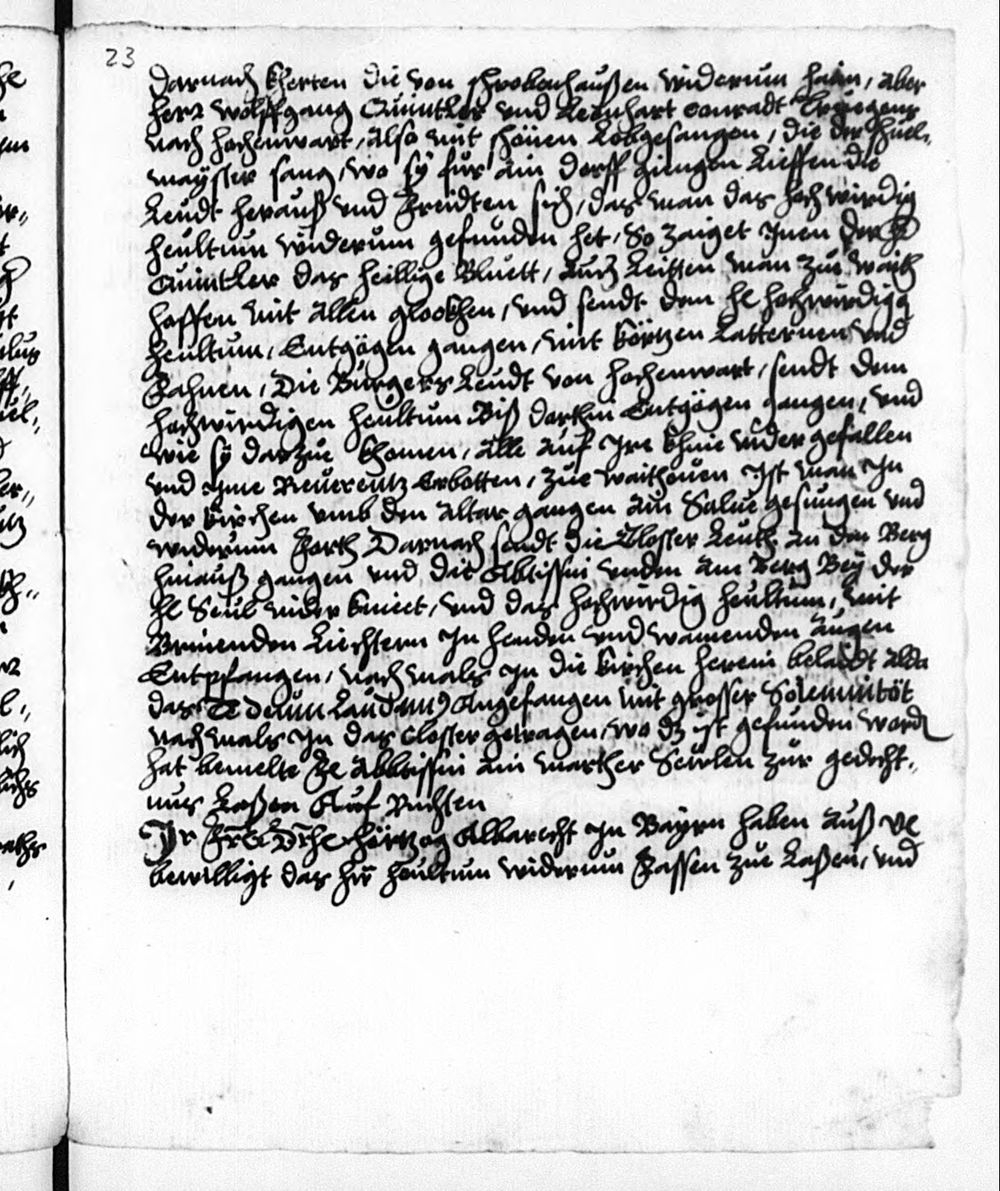 23
darnach kherten die von schrobenhaußen widerum haim, aber
herr wolffgang Quintler vnd Leonhart conradt truegens
nach hochenwart, also mit schönen Lobgesangen, die der schuel„
maysster sang, wo sy für ain dorff giengen Lieffen die
Leudt herauß vnd freidten sich, das man das hochwirdig
heultum widerum gefunden het, So zaiget Inen der he
Quintler das heillige Bluett, auch Leitten man zue waith
hoffen mit allen gloockhen, vnd sendt dem hl hochwürdigg
heultum, Entgögen gangen, mit körtzen Latternen vnd
Fahnen, Die Burgers Leudt von hochenwart, sendt dem
hochwirdigen heultum Biß dorthin Entgögen gangen, vnd
wie sy darzue khomen, alle auf Ire khnie nider gefallen
vnd Ime Reuerentz Erbotten, zue waithouen Ist man In
der kirchen vmb den altar gangen ain Salue gesungen vnd
widerum forth Darnach sendt die Closser Leuth an den Berg
hinauß gangen vnd die Abtissin vnden am Berg Bey der
hl Seul nider kniet, vnd das hochwirdig heultum, mit
Brinenden Liechtern In henden vnd wainenden augen
Entpfangen, nachmals In die kirchen herein belaidt alda
das Te deum Laudamus Angefangen mit grosser Solemnitöt
nachmals In das Closser getragen, wo dz ist gefunden word
hat bemelte he abbtissin ain marther Seiwlen zur gedecht„
nus Laßen Auf Richten
Ir Frl Drhl hörtzog Albarecht In Bayrn haben auß
bewilligt das hw heultum widerum Fassen zue Laßen, vnd